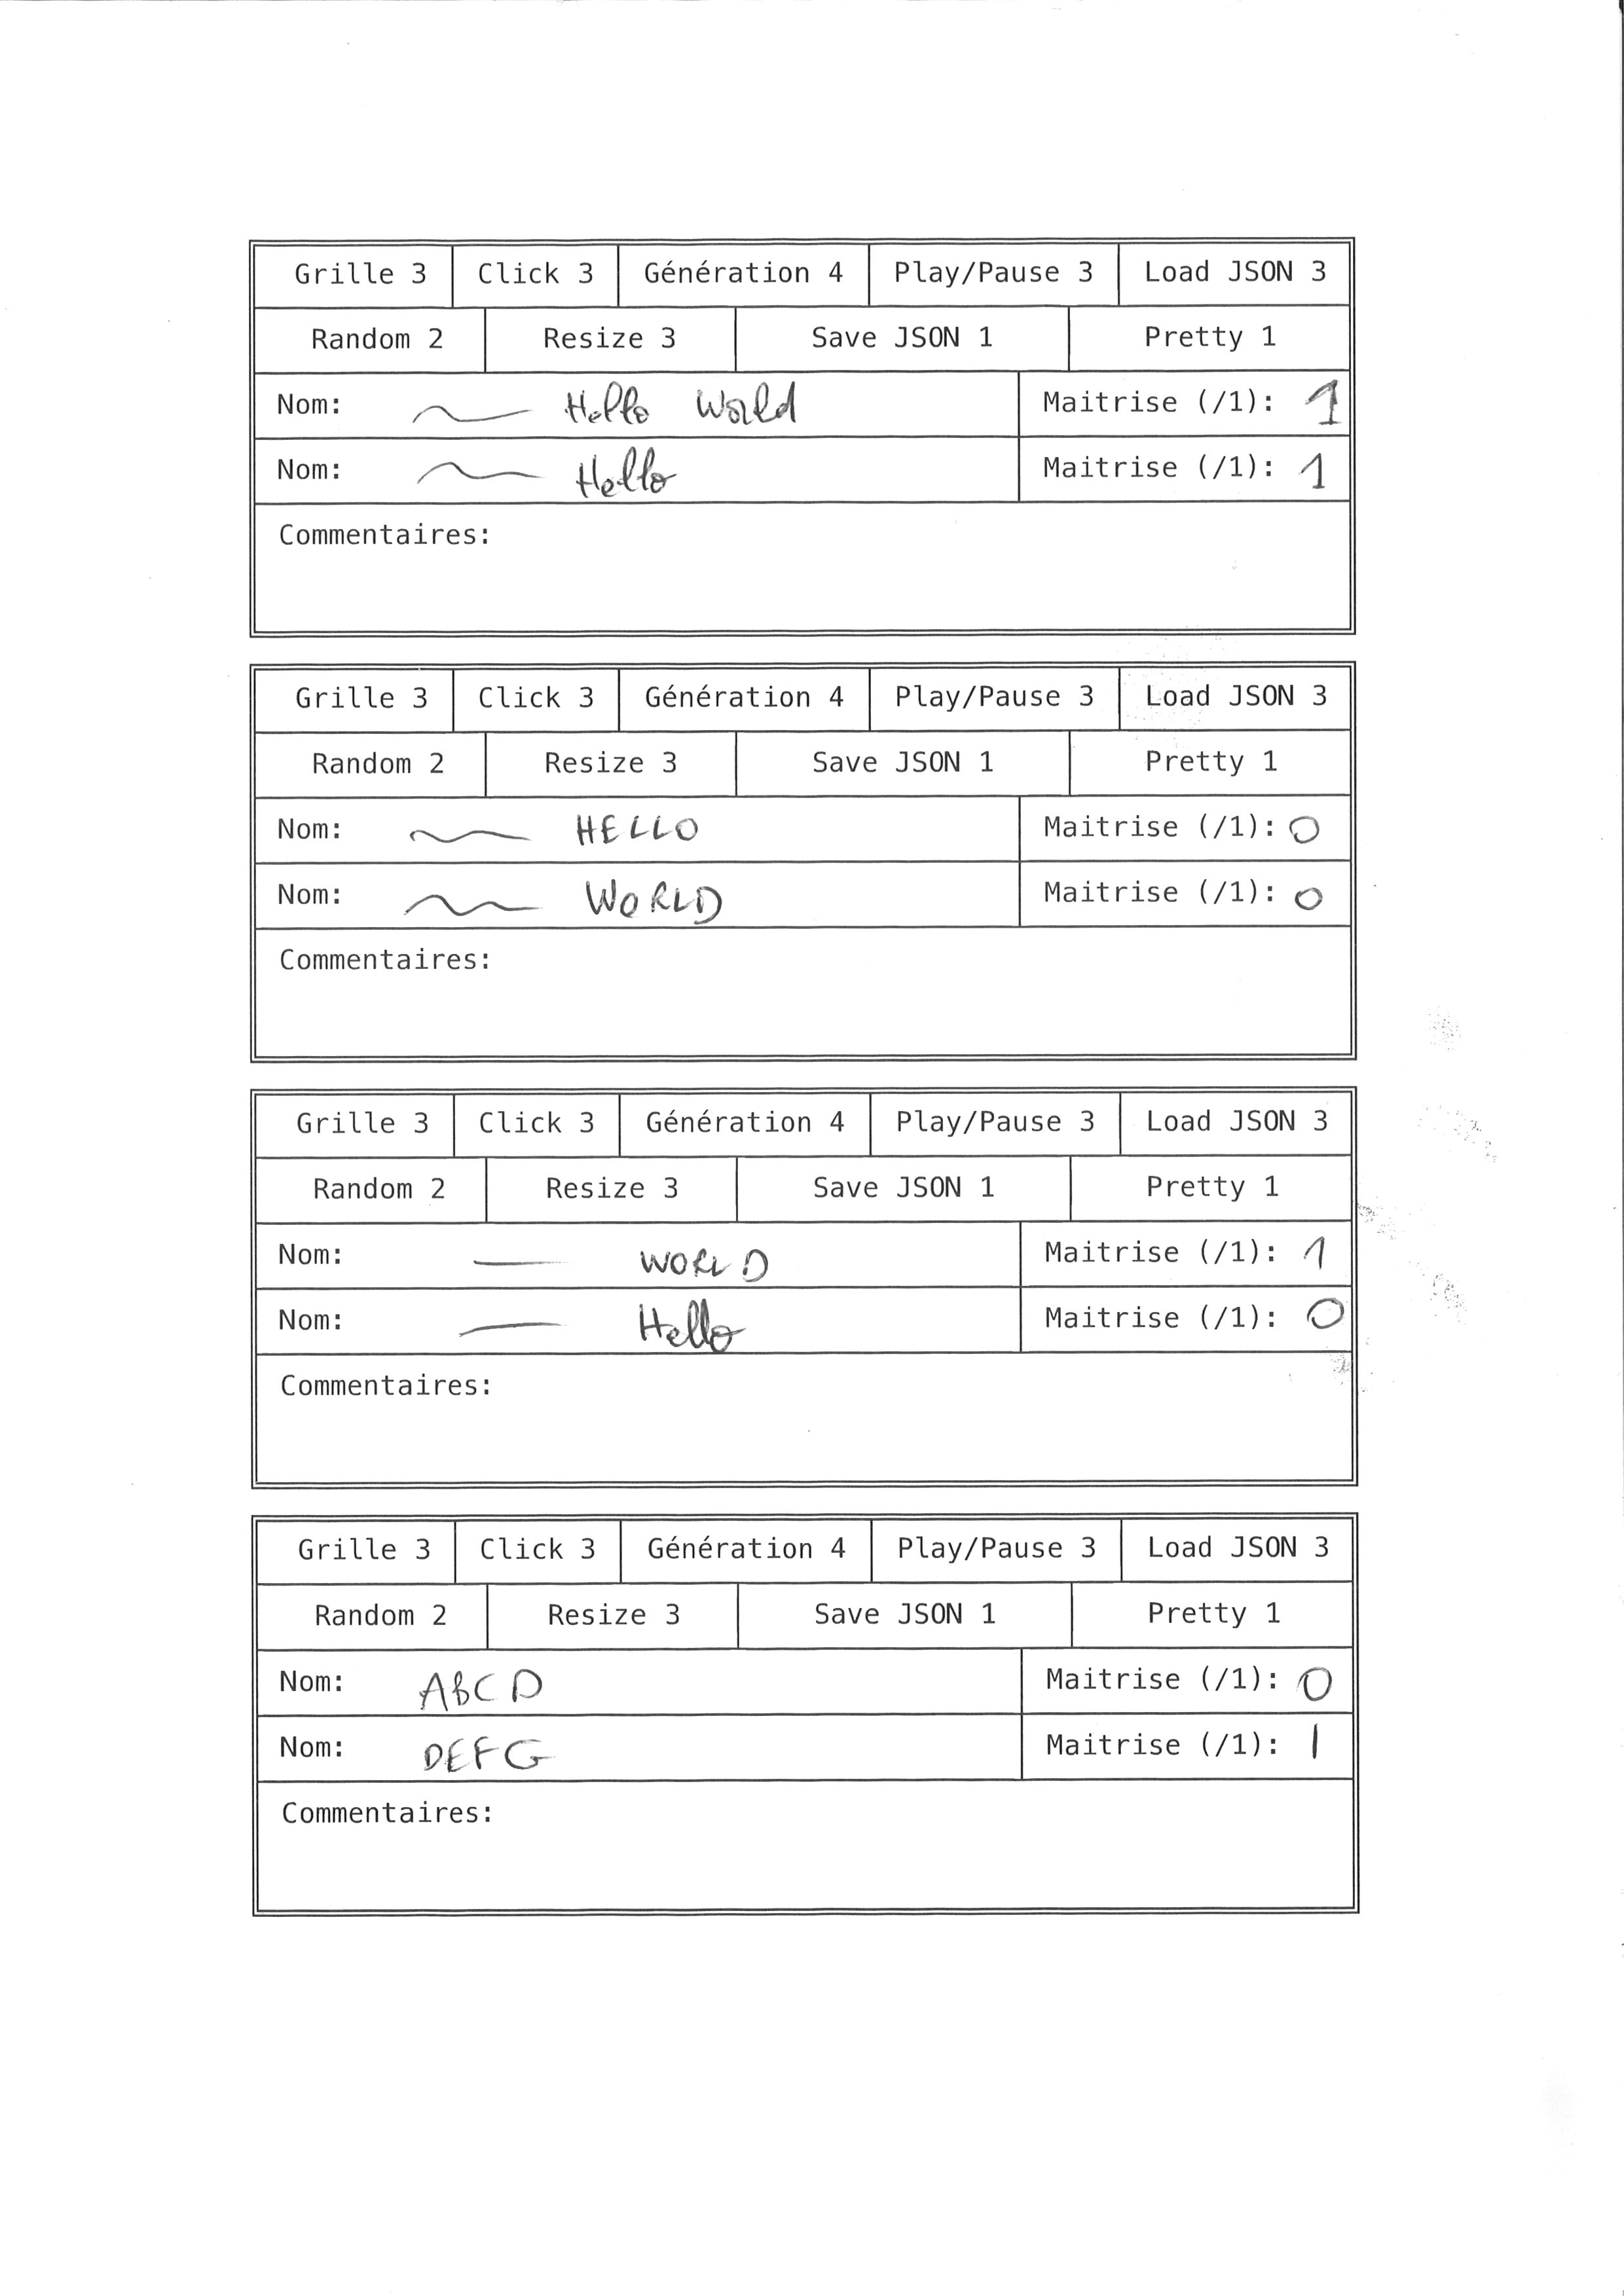 Grille 3 Click 3 Génération 4 Play/Pause 3 Load JSON 3
Random 2 Resize 3 Save JSON 1 Pretty 1
Nom: Hello World Maitrise (/1): 1
Nom: Hello Maitrise (/1): 1
Commentaires:
Grille 3 Click 3 Génération 4 Play/Pause 3 Load JSON 3
Random 2 Resize 3 Save JSON 1 Pretty 1
Nom: HELLO Maitrise (/1): 0
Nom: WORLD Maitrise (/1): 0
Commentaires:
Grille 3 Click 3 Génération 4 Play/Pause 3 Load JSON 3
Random 2 Resize 3 Save JSON 1 Pretty 1
Nom: WORLD Maitrise (/1): 1
Nom: Hello Maitrise (/1): 0
Commentaires:
Grille 3 Click 3 Génération 4 Play/Pause 3 Load JSON 3
Random 2 Resize 3 Save JSON 1 Pretty 1
Nom: ABCD Maitrise (/1): 0
Nom: DEFG Maitrise (/1): 1
Commentaires: